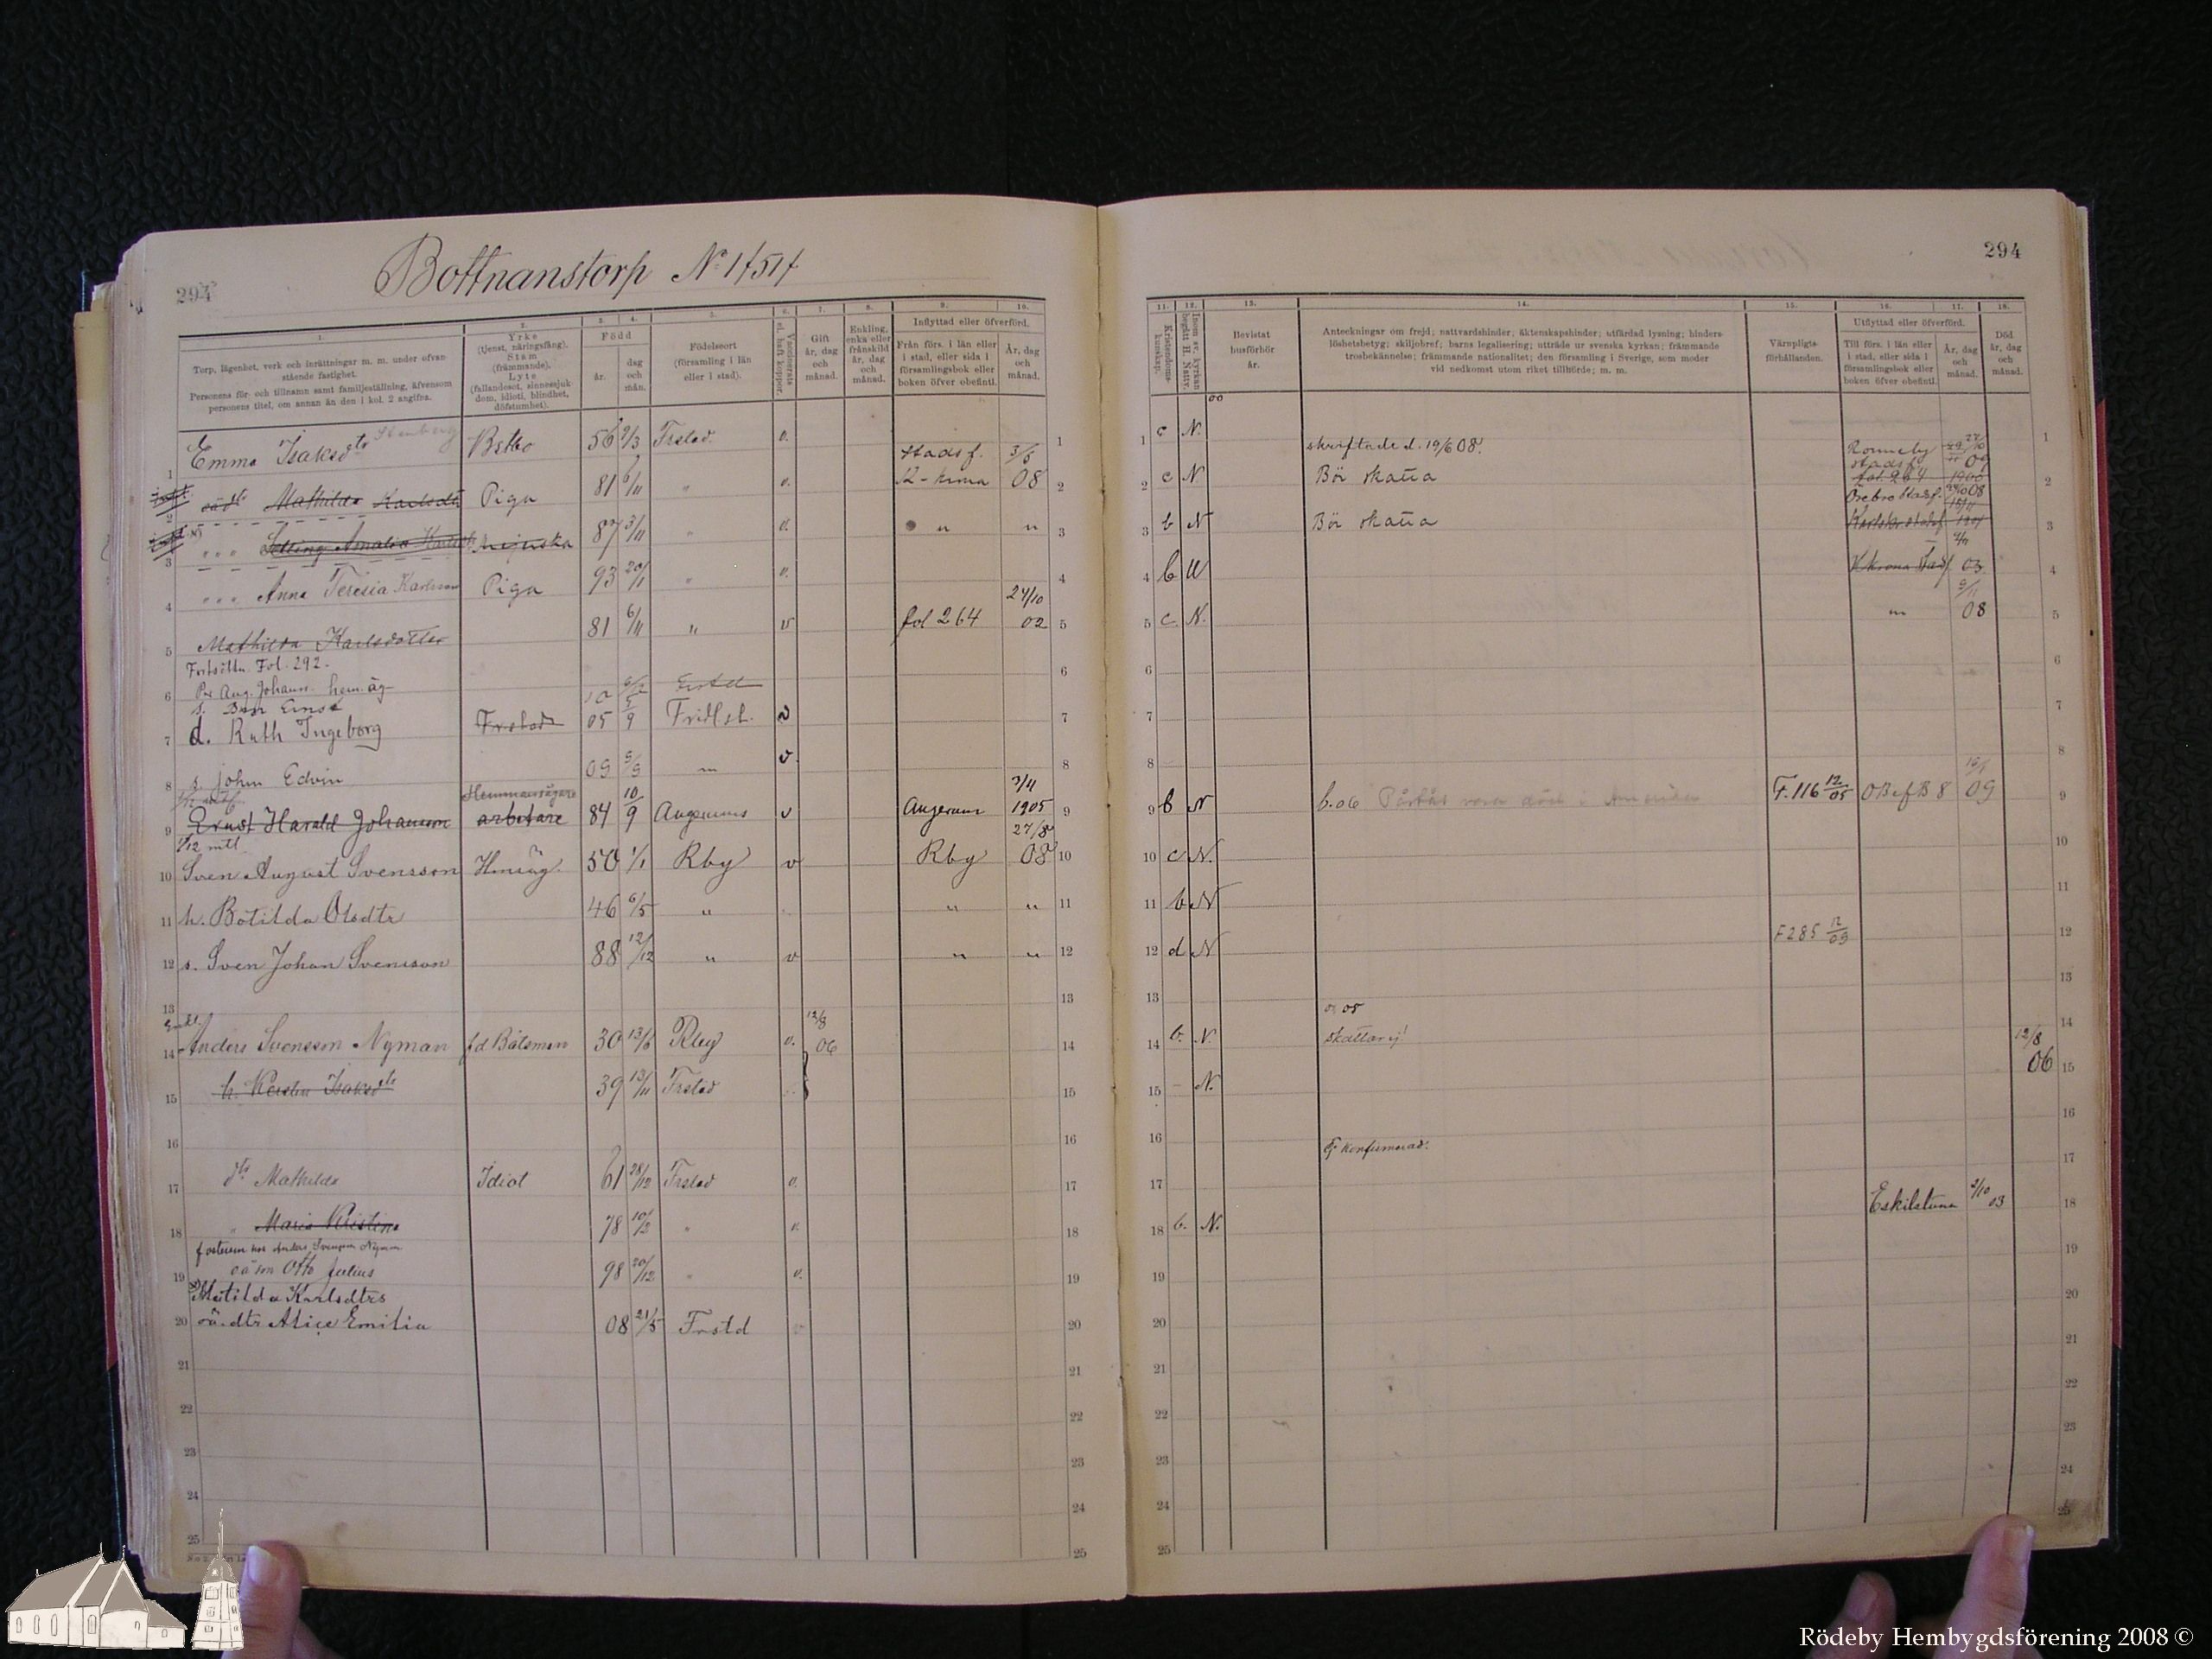 294
Bottnanstorp No 1 f 51 f
294
1. 2. 3. 4. 5. 6. 7. 8. 9. 10.
Torp, lägenhet, verk och inrättningar m. m. under ofvanstående fastighet.
Personens för- och tillnamn samt familjeställning, äfvensom personens titel, om annan än den i kol. 2 angifna.
Yrke
(tjenst, näringsfång).
Stam
(främmande).
Lyte
(fallandesot, sinnessjukdom, idioti, blindhet, döfstumhet).
Född
år.
dag och mån.
Födelseort
(församling i län eller i stad).
Vaccinerats el. haft k.koppor.
Gift
år, dag och månad.
Enkling, enka eller frånskild
år, dag och månad.
Inflyttad eller öfverförd.
Från förs. i län eller i stad, eller sida i församlingsbok eller boken öfver obefintl.
År, dag och månad.
11. 12. 13. 14. 15. 16. 17. 18.
Kristendomskunskap.
Inom sv. kyrkan begått H. Nattv.
Bevistat husförhör år.
Anteckningar om frejd; nattvardshinder; äktenskapshinder; utfärdad lysning; hinderslöshetsbetyg; skiljobref; barns legalisering; utträde ur svenska kyrkan; främmande trosbekännelse; främmande nationalitet; den församling i Sverige, som moder vid nedkomst utom riket tillhörde; m. m.
Värnpligtsförhållanden.
Utflyttad eller öfverförd.
Till förs. i län eller i stad, eller sida i församlingsbok eller boken öfver obefintl.
År, dag och månad.
Död
år, dag och månad.
1 Emma Isaksdtr Stenberg 56 9/3 Frstad. v. 1
1 c N. 00 skriftade d. 19/6 08. Ronneby stadsf. 09 1
2 oädtr Mathilda Karlsdtr Piga 81 6/11 " v. stadsf. K-krona 3/5 08 2
2 c N Bör skatta fol. 264 1900 Örebro stadsf. 08 2
3 " Amalia 87 3/11 " v. " " 3
3 b N Bör skatta 3
4 " Anna Teresia Karlsson Piga 93 20/1 " v. 4
4 b N K.krona Stadsf 03 4
5 Mathilda Karlsdotter 81 6/11 " v fol 264 27/10 02 5
5 c N. " 08 5
Fortsättn. Fol. 292.
6 Per Aug. Johans. hem.äg 6
6 6
s. Ernst 10
7 d. Ruth Ingeborg Frstad 05 5/9 Fridlst. v 7
7 7
8 s. John Edvin 09 5/9 " v. 8
8 8
Hemmansägare
9 Ernst Harald Johansson arbetare 84 10/9 Augerums v Augerum 3/11 1905 9
9 b N b. 06 F. 116 12/05 OBefB 8 09 9
1/12 mtl
10 Sven August Svensson Hmäg. 50 1/1 Rby v Rby 27/8 08 10
10 c N. 10
11 h. Botilda Olsdtr 46 6/5 " " " 11
11 b N 11
12 s. Sven Johan Svensson 88 12/12 " v " " 12
12 d N F 285 12/09 12
13 13
13 13
14 Anders Svensson Nyman f.d Båtsman 30 13/6 Rby v. 12/8 06 14
14 b. N. skattar ej! 14
15 h. Kerstin Isaksdtr 39 13/11 Frstad 15
15 - N. 12/8 06 15
16 16
16 16
17 dtr Mathilda Idiot 61 28/12 Frstad v. 17
17 Ej konfirmerad. 17
18 " Maria Kristina 78 10/2 " v. 18
18 b. N. Eskilstuna 9/10 03 18
fosterson hos Anders Svensson Nyman
19 oä son Otto Julius 98 20/12 " v. 19
19 19
Matilda Karlsdtrs
20 oä. dtr Alice Emilia 08 21/5 Frstd v 20
20 20
21 21 21 21
22 22 22 22
23 23 23 23
24 24 24 24
25 25 25 25
Rödeby Hembygdsförening 2008 ©